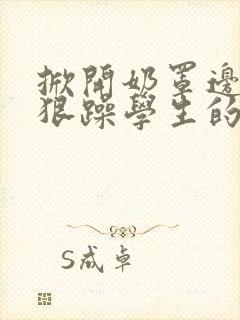 掀開奶罩邊
狠躁學生的
S 卓